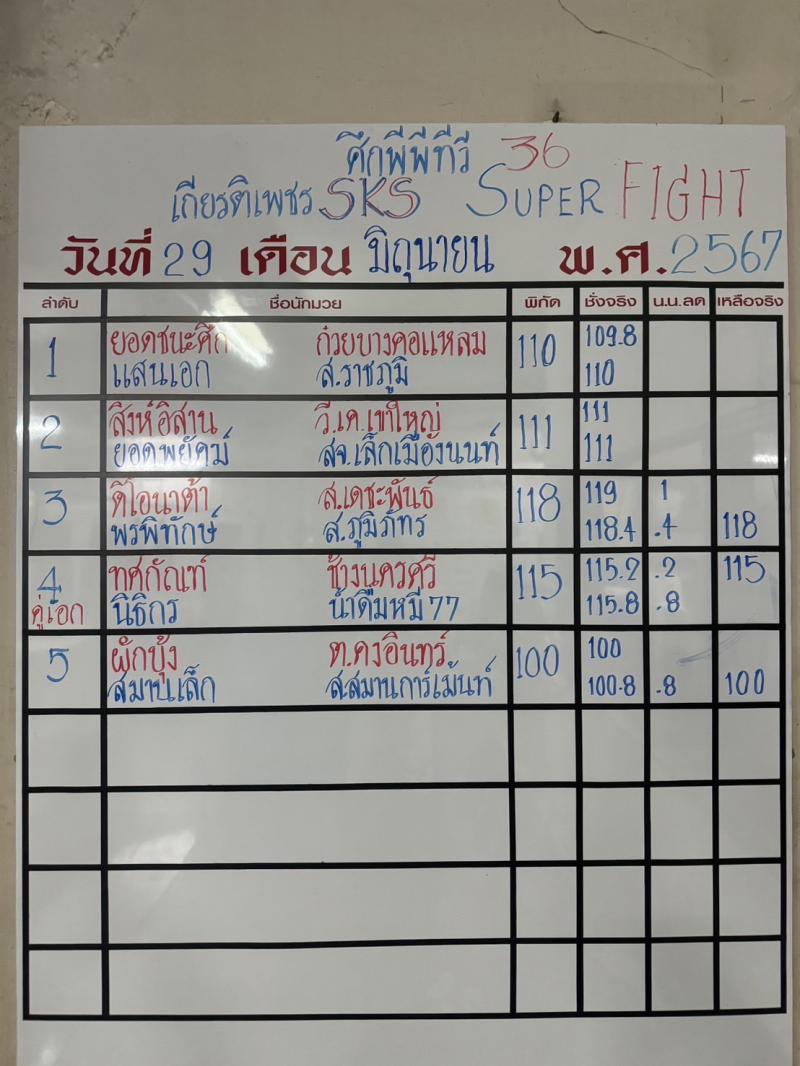 ศึกพีพีทีวี 36
เกียรติเพชร SKS SUPER FIGHT
วันที่ 29 เดือน มิถุนายน พ.ศ. 2567
ลำดับ ชื่อนักมวย พิกัด ชั่งจริง น.น.ลด เหลือจริง
1 ยอดชนะศึก ก๋วยบางคอแหลม 110 109.8
แสนเอก ส.ราชภูมิ 110
2 สิงห์อิสาน วี.เค.เขาใหญ่ 111 111
ยอดพยัคฆ์ สจ.เล็กเมืองนนท์ 111
3 ดิโอนาต้า ส.เดชะพันธ์ 118 119 1
พรพิทักษ์ ส.ภูมิภัทร 118.4 .4 118
4 ทศกัณฑ์ ช้างนครศรี 115 115.2 .2 115
คู่เอก นิธิกร น้ำดื่มหมี 77 115.8 .8
5 ผักบุ้ง ต.คงอินทร์ 100 100
สมานเล็ก ส.สมานการ์เม้นท์ 100.8 .8 100